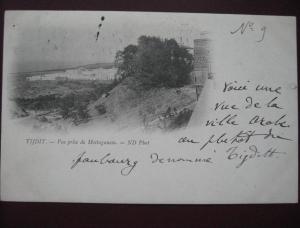 N° 9
Voici une
vue de la
ville Arabe
ou plutôt du
TIJDIT. — Vue prise de Mostaganem. — ND Phot
faubourg dénommé Tijditt